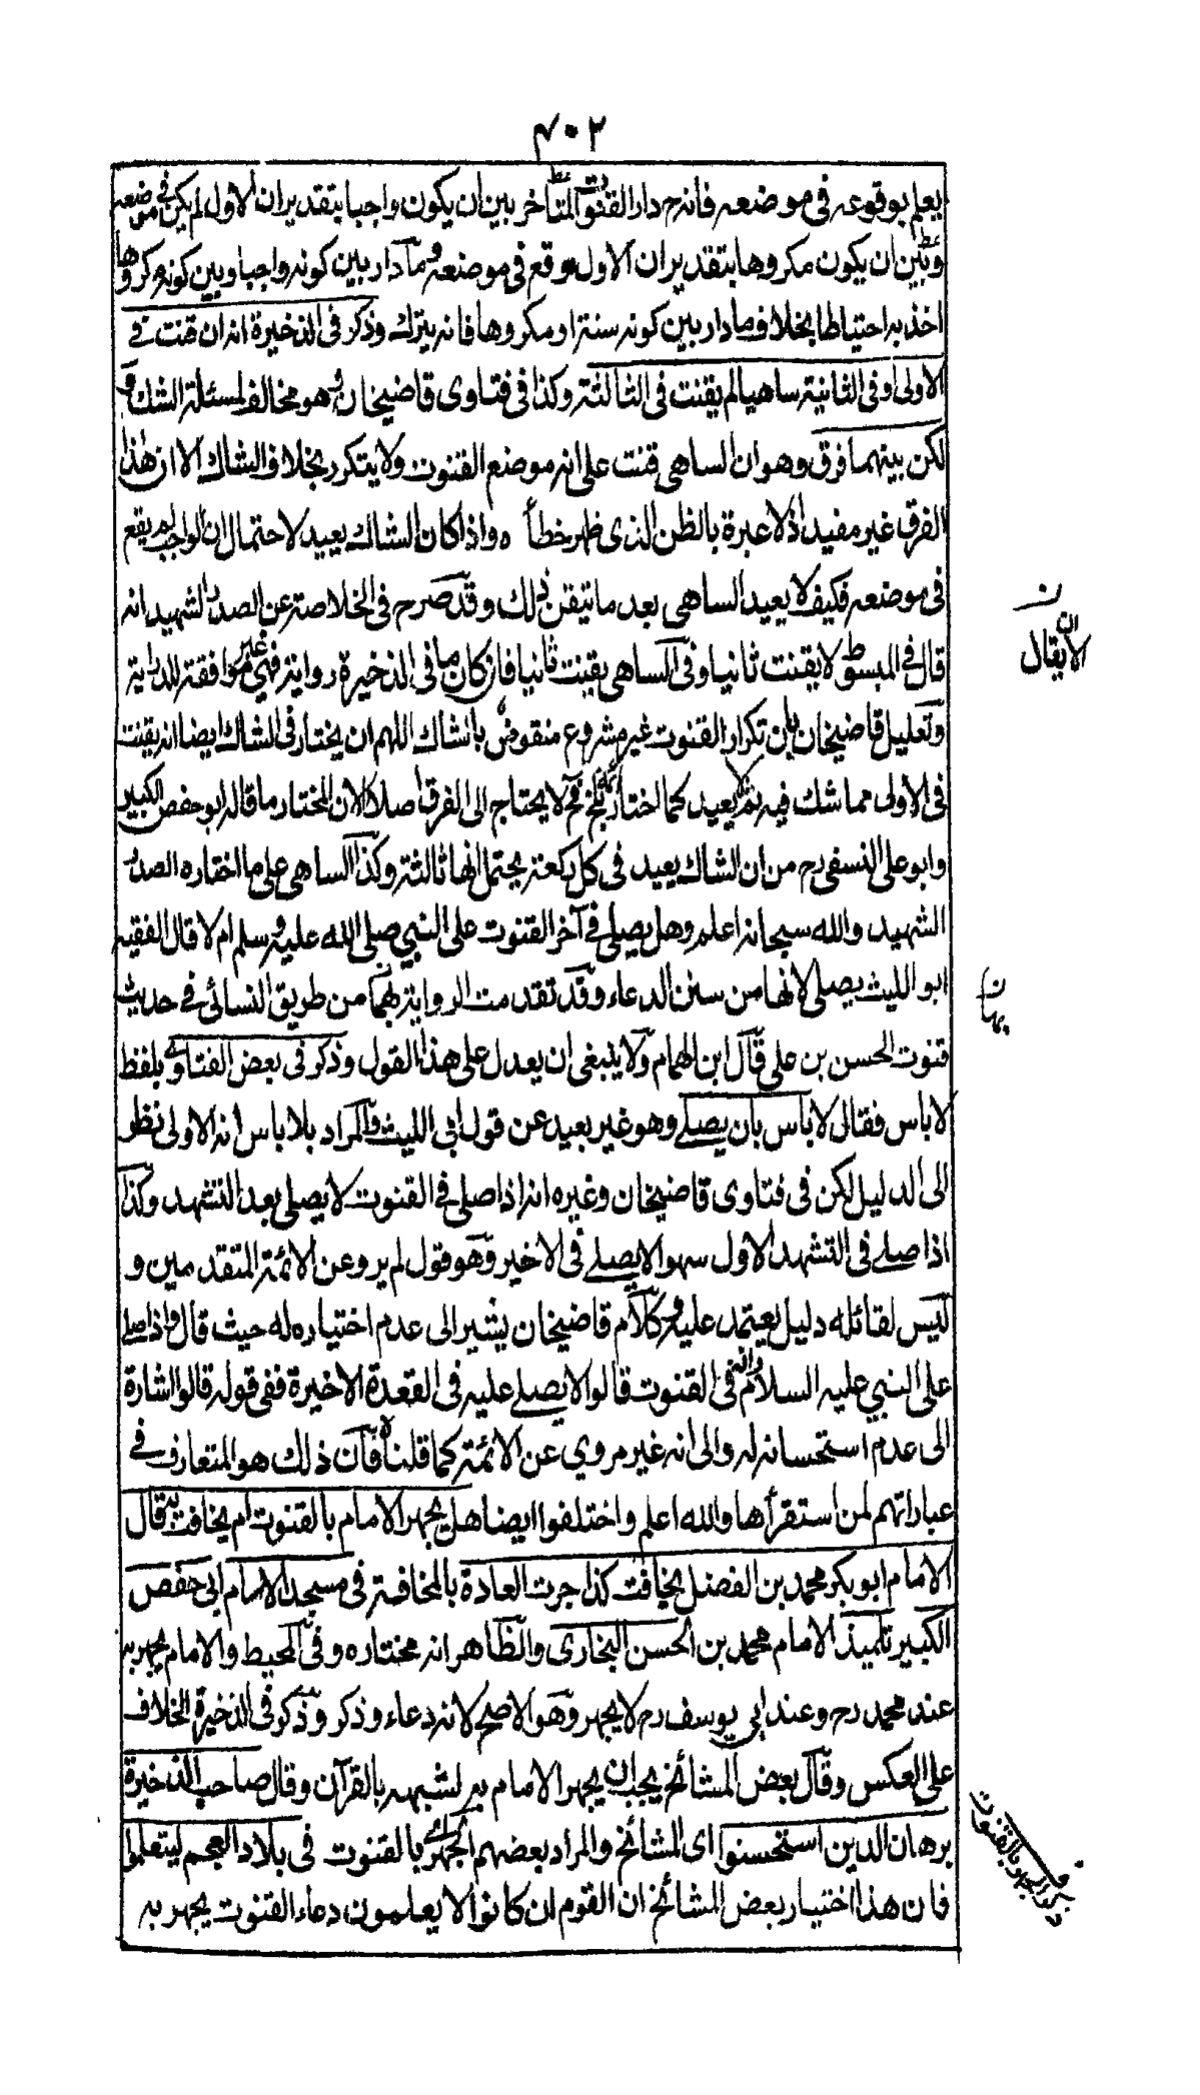 ٤٠٢
يعلم بوقوعه فى موضعه فانه ح دار القنوت المتأخر بين ان يكون واجبا بتقدير ان الاول لم يكن فى موضعه
وبين ان يكون مكروها بتقدير ان الاول وقع فى موضعه وما دار بين كونه واجبا وبين كونه مكروها
اخذ به احتياطا بخلاف ما دار بين كونه سنة او مكروها فانه يترك وذكر فى الذخيرة انه ان قنت فے
الاولى او فى الثانية ساهيا لم يقنت فى الثالثة وكذا فى فتاوى قاضيخان وهو مخالف لمسئلة الشك و
لكن بينهما فرق وهو ان الساهى قنت على انه موضع القنوت ولا يتكرر بخلاف الشاك الا ان هذا
الفرق غير مفيد اذ لا عبرة بالظن الذى ظهر خطأه واذا كان الشاك يعيد لاحتمال ان الواجب لم يقع
فى موضعه فكيف لا يعيد الساهى بعد ما تيقن ذلك وقد صرح فى الخلاصة عن الصدر الشهيد انه
قال فى المبسوط لا يقنت ثانيا وفى الساهى يقنت ثانيا فان كان ما فى الذخيرة رواية فهى غير موافقة للدراية
وتعليل قاضيخان بان تكرار القنوت غير مشروع منقوض بالشاك اللهم ان يختار فى الشاك ايضا انه يقنت
فى الاولى مما شك فيه ثم لا يعيد كما اختاره بلخ فح لا يحتاج الى الفرق اصلا لان المختار ما قاله ابو حفص الكبير
وابو على النسفى رح من ان الشاك يعيد فى كل ركعة يحتمل انها ثالثة وكذا الساهى على ما اختاره الصدر
الشهيد والله سبحانه اعلم وهل يصلى فى آخر القنوت على النبي صلى الله عليه وسلم ام لا قال الفقيه
ابو الليث يصلى لانها من سنن الدعاء وقد تقدمت الرواية بهما من طريق النسائى فے حديث
قنوت الحسن بن على قال ابن الهمام ولا ينبغى ان يعدل على هذا القول وذكر فى بعض الفتاوے بلفظ
لا باس فقال لا باس بان يصلے وهو غير بعيد عن قول ابى الليث والمراد بلا باس انه الاولى نظر
الى الدليل لكن فى فتاوى قاضيخان وغيره انه اذا صلى فے القنوت لا يصلى بعد التشهد وكذا
اذا صلے فى التشهد الاول سهوا لا يصلے فى الاخير وهو قول لم يرو عن الائمة المتقدمين و
ليس لقائله دليل يعتمد عليه وكلام قاضيخان يشير الى عدم اختياره له حيث قال واذا صلے
على النبي عليه السلام فى القنوت قالوا لا يصلے عليه فى القعدة الاخيرة ففى قوله قالوا اشارة
الى عدم استحسانه له والى انه غير مروي عن الائمة كما قلناه فان ذلك هو المتعارف فے
عباراتهم لمن استقرأها والله اعلم واختلفوا ايضا هل يجهر الامام بالقنوت ام يخافت به قال
الامام ابو بكر محمد بن الفضل يخافت كذا جرت العادة بالمخافتة فى مسجد الامام ابى حفص
الكبير تلميذ الامام محمد بن الحسن البخارى والظاهر انه مختاره وفى المحيط والامام يجهر به
عند محمد رح وعند ابى يوسف رح لا يجهر وهو الاصح لانه دعاء وذكر وذكر فى الذخيرة الخلاف
على العكس وقال بعض المشائخ يجب ان يجهر الامام به لشبهه بالقرآن وقال صاحب الذخيرة
برهان الدين استحسنوا اى المشائخ والمراد بعضهم الجهر بالقنوت فى بلاد العجم ليتعلموا
فان هذا اختيار بعض المشائخ ان القوم ان كانوا لا يعلمون دعاء القنوت يجهر به
الا ان يقال
ذكر الجهر بالقنوت